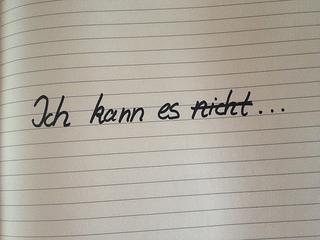 Ich kann es nicht...